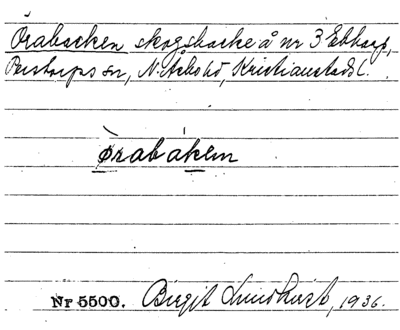 Örabacken skogsbacke å nr 3 Ebbarp,
Perstorps sn, N. Åsbo hd, Kristianstads l.
ø̀rabákɛn
Nr 5500. Birgit Lundkvist, 1936.